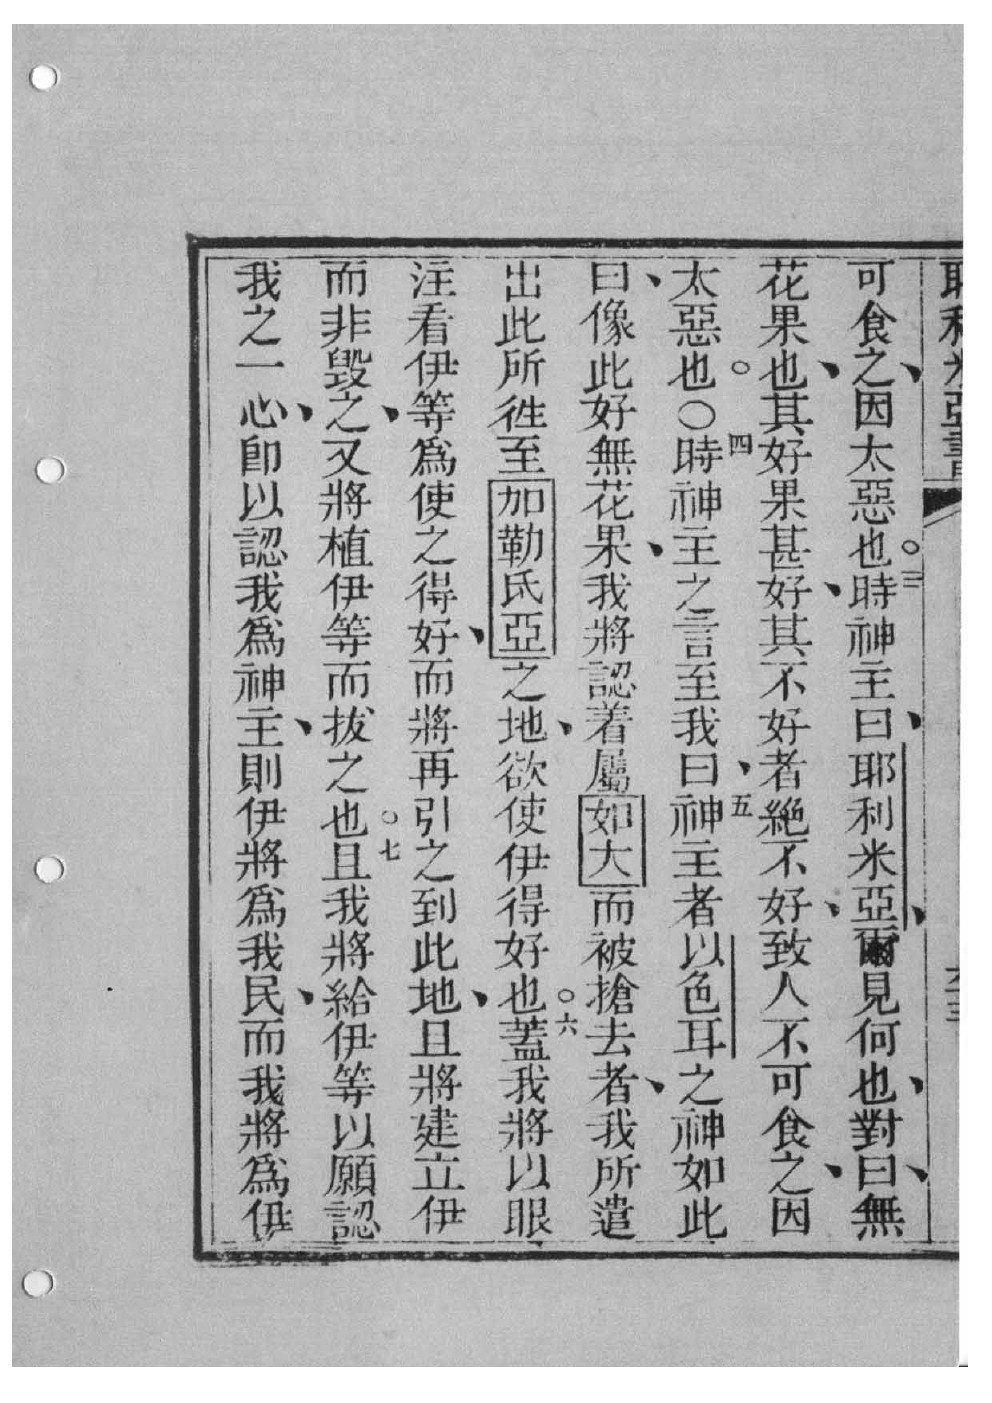 耶利米亞書
可食之、因太惡也。三時神主曰、耶利米亞、爾見何也、對曰、無
花果也、其好果甚好、其不好者絕不好、致人不可食之、因
太惡也。○四時神主之言至我曰、五神主者以色耳之神如此
曰、像此好無花果、我將認着屬如大而被搶去者、我所遣
出此所徃至加勒氐亞之地、欲使伊得好也。六蓋我將以眼
注看伊等爲使之得好、而將再引之到此地、且將建立伊
而非毀之、又將植伊等而拔之也。七且我將給伊等以願認
我之一心、卽以認我爲神主、則伊將爲我民、而我將爲伊